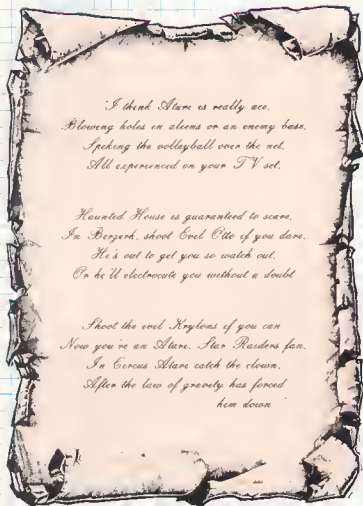 'I think Atari is really ace,
Blowing holes in aliens or an enemy base,
Spiking the volleyball over the net,
All experienced on your TV set.
Haunted House is guaranteed to scare,
In Berzerk, shoot Evil Otto if you dare.
He's out to get you so watch out,
Or he'll electrocute you without a doubt
Shoot the evil Krylons if you can
Now you're an Atari, Star Raiders fan,
In Circus Atari catch the clown,
After the law of gravity has forced
him down'